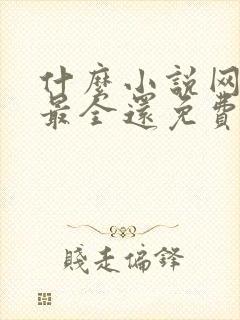 什麽小説网
最全還免費
賤走偏鋒